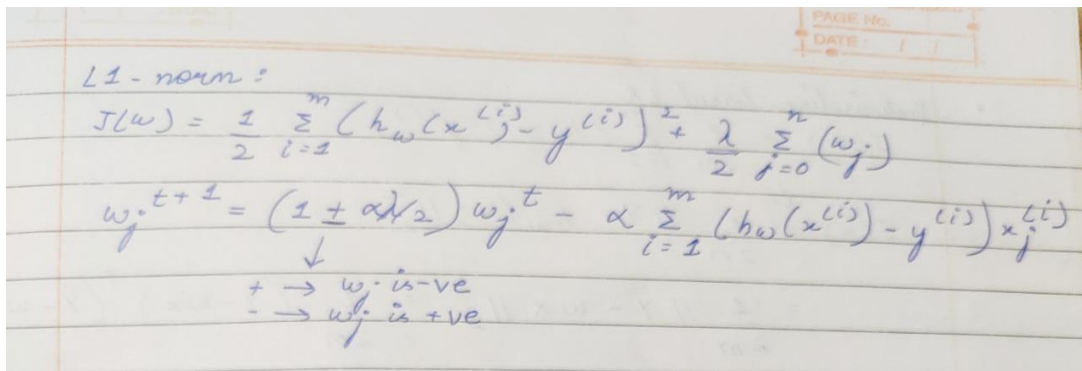 PAGE No.
DATE : / /
L1 - norm :
J(w) = 1/2 Σ_{i=1}^{m} (h_w(x^{(i)}) - y^{(i)})^2 + λ/2 Σ_{j=0}^{n} (w_j)
w_j^{t+1} = (1 ± αλ/2) w_j^t - α Σ_{i=1}^{m} (h_w(x^{(i)}) - y^{(i)}) x_j^{(i)}
↓
+ → w_j is -ve
- → w_j is +ve